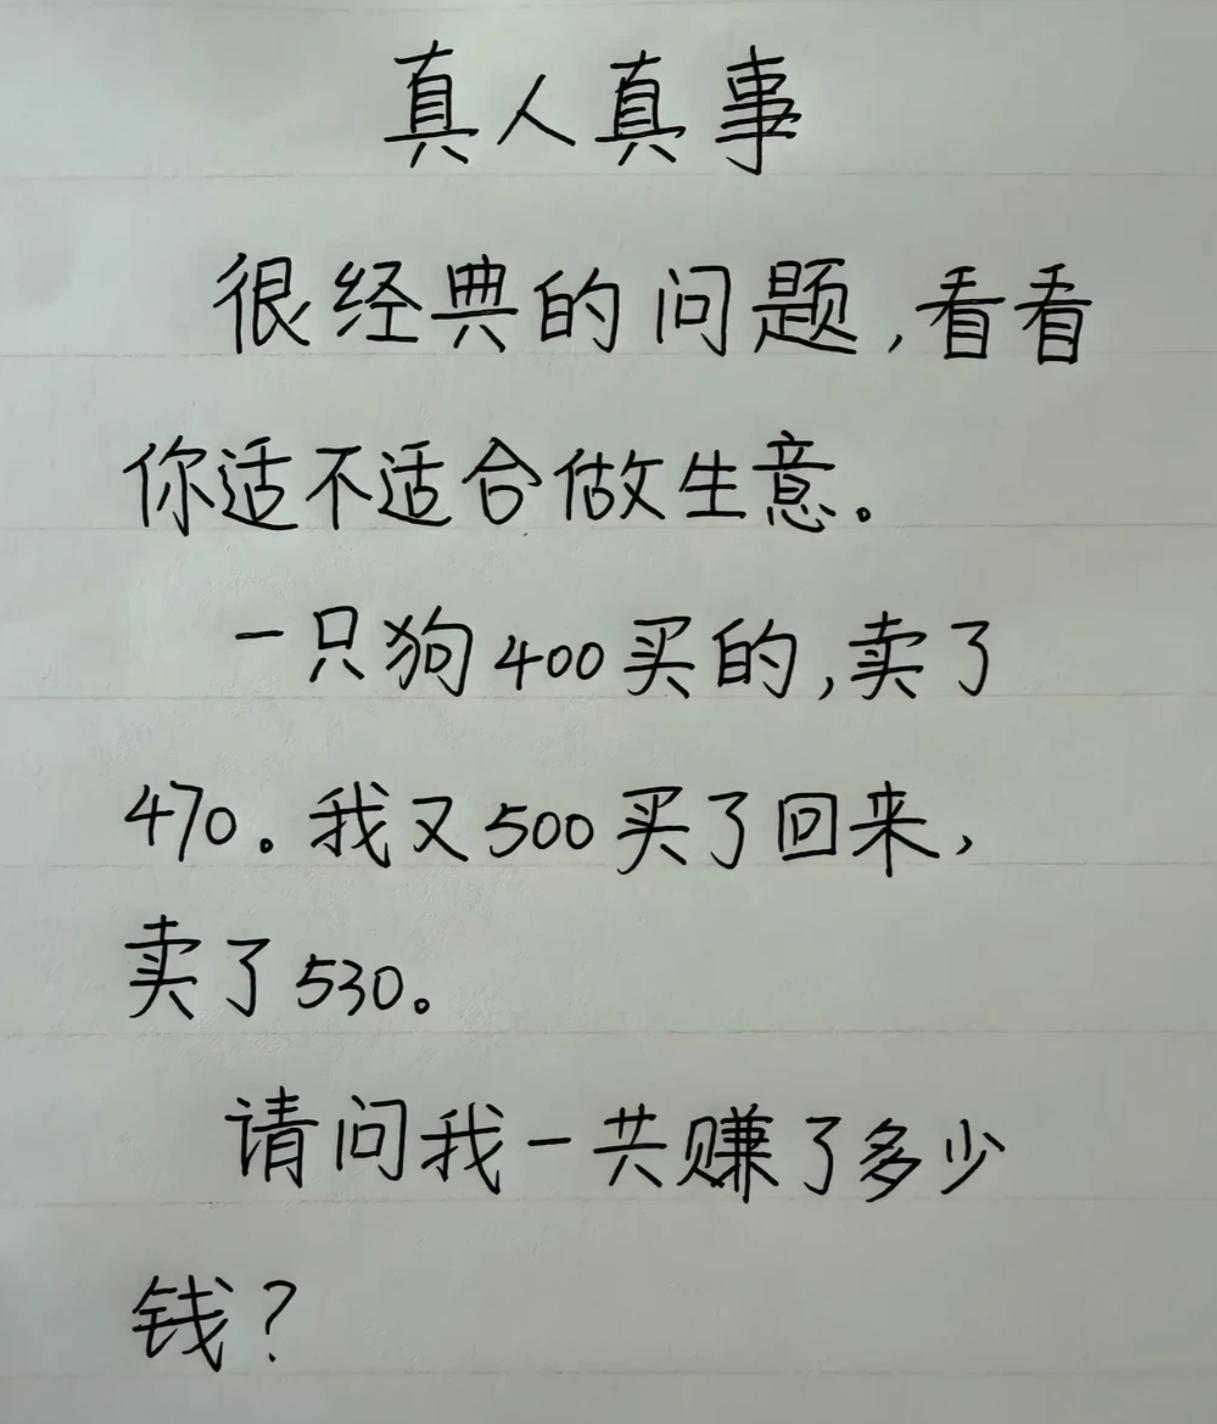 真人真事
很经典的问题,看看
你适不适合做生意。
一只狗400买的,卖了
470。我又500买了回来,
卖了530。
请问我一共赚了多少
钱?